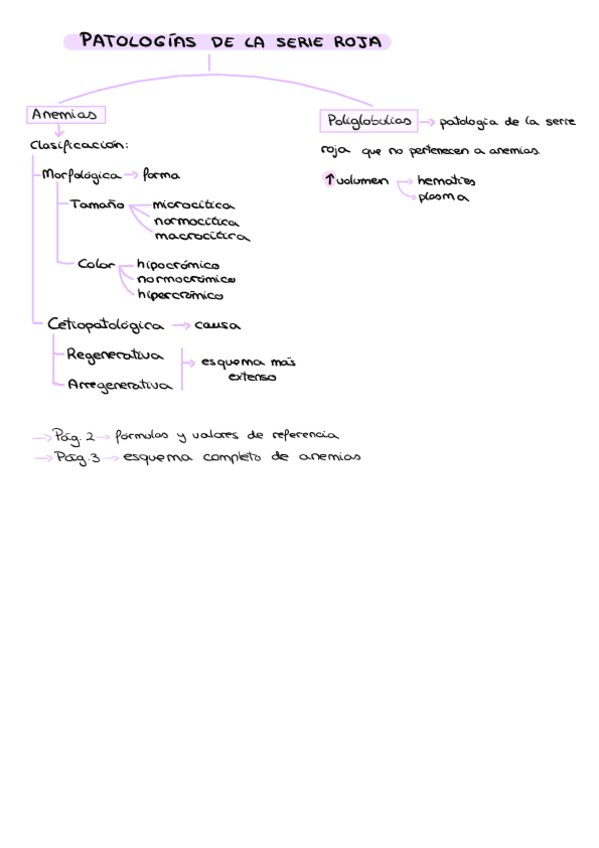 PATOLOGÍAS DE LA SERIE ROJA
Anemias
Clasificación:
Morfológica → forma
Tamaño
microcítica
normocítica
macrocítica
Color
hipocrómico
normocrómico
hipercrómico
Cetiopatológica → causa
Regenerativa
Arregenerativa
→ esquema más
extenso
Poliglobulias → patología de la serie
roja que no pertenecen a anemias.
↑volumen → hematíes
→ plasma
→ Pág. 2 → fórmulas y valores de referencia
→ Pág. 3 → esquema completo de anemias